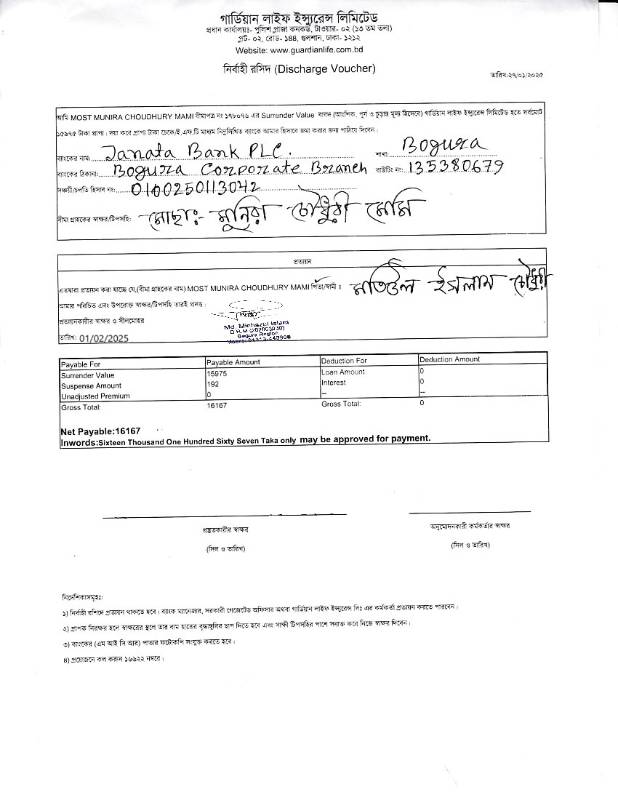 গার্ডিয়ান লাইফ ইন্স্যুরেন্স লিমিটেড
প্রধান কার্যালয়ঃ- পুলিশ প্লাজা কনকর্ড, টাওয়ার- ০২ (১৩ তম তলা)
প্লট- ০২, রোড- ১৪৪, গুলশান, ঢাকা- ১২১২
Website: www.guardianlife.com.bd
নির্বাহী রসিদ (Discharge Voucher)
তারিখ:২৭/০১/২০২৫
আমি MOST MUNIRA CHOUDHURY MAMI বীমাপত্র নং ১৭৮০৭৬ এর Surrender Value বাবদ (আংশিক, পূর্ণ ও চূড়ান্ত মূল্য হিসেবে) গার্ডিয়ান লাইফ ইন্স্যুরেন্স লিমিটেড হতে সর্বমোট
১৫৯৭৫ টাকা প্রাপ্য। দয়া করে প্রাপ্য টাকা চেকে/ই.এফ.টি মাধ্যম নিম্নলিখিত ব্যাংকে আমার হিসাবে জমা করার জন্য পাঠিয়ে দিবেন।
ব্যাংকের নাম: Janata Bank PLC. শাখা: Bogura
ব্যাংকের ঠিকানা: Bogura Corporate Branch রাউটিং নং: 135380679
সঞ্চয়ী/চলতি হিসাব নং: 0100250113042
বীমা গ্রাহকের স্বাক্ষর/টিপসহি: মোছাঃ- মুনিরা চৌধুরী মেমি
প্রত্যয়ন
এতদ্বারা প্রত্যয়ন করা যাচ্ছে যে,(বীমা গ্রাহকের নাম) MOST MUNIRA CHOUDHURY MAMI পিতা/স্বামী : মতিউল ইসলাম চৌধুরী
আমার পরিচিত এবং উপরোক্ত স্বাক্ষর/টিপসহি তারই প্রদত্ত।
প্রত্যয়নকারীর স্বাক্ষর ও সীলমোহর
Md. Minhazul Islam
Bogura Region
তারিখ: 01/02/2025
Payable For Payable Amount Deduction For Deduction Amount
Surrender Value 15975 Loan Amount 0
Suspense Amount 192 Interest 0
Unadjusted Premium 0 -- --
Gross Total: 16167 Gross Total: 0
Net Payable:16167
Inwords:Sixteen Thousand One Hundred Sixty Seven Taka only may be approved for payment.
প্রস্তুতকারীর স্বাক্ষর অনুমোদনকারী কর্মকর্তার স্বাক্ষর
(সিল ও তারিখ) (সিল ও তারিখ)
নির্দেশিকাসমূহঃ
১) নির্বাহী রশিদে প্রত্যয়ন থাকতে হবে। ব্যাংক ম্যানেজার, সরকারী গেজেটেড অফিসার অথবা গার্ডিয়ান লাইফ ইন্স্যুরেন্স লিঃ এর কর্মকর্তা প্রত্যয়ন করতে পারবেন।
২) প্রাপক নিরক্ষর হলে স্বাক্ষরের স্থলে তার বাম হাতের বৃদ্ধাঙ্গুলির ছাপ দিতে হবে এবং সাক্ষী টিপসহির পাশে সনাক্ত করে নিজে স্বাক্ষর দিবেন।
৩) ব্যাংকের (এম আই সি আর) পাতার ফটোকপি সংযুক্ত করতে হবে।
৪) প্রয়োজনে কল করুন ১৬৬২২ নম্বরে।